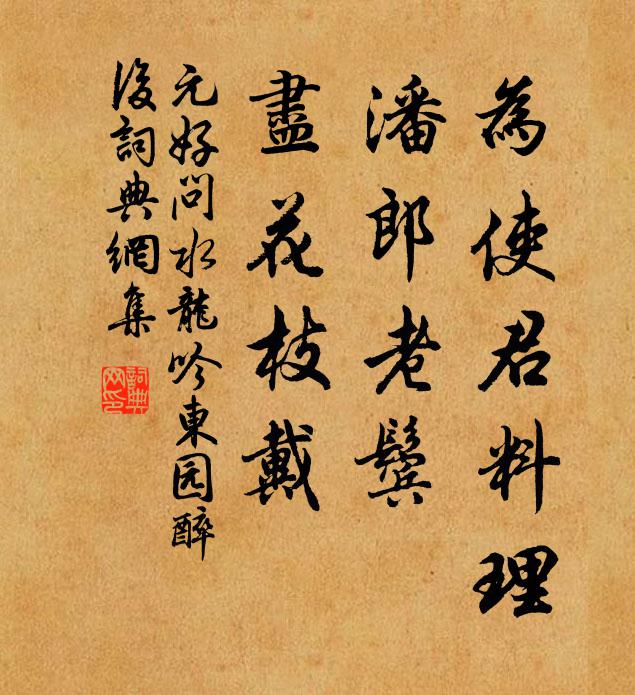 為使君料理
潘郎老鬢
盡花枝戴
元好問水龍吟東园醉
後詞典網集
詞典
网印